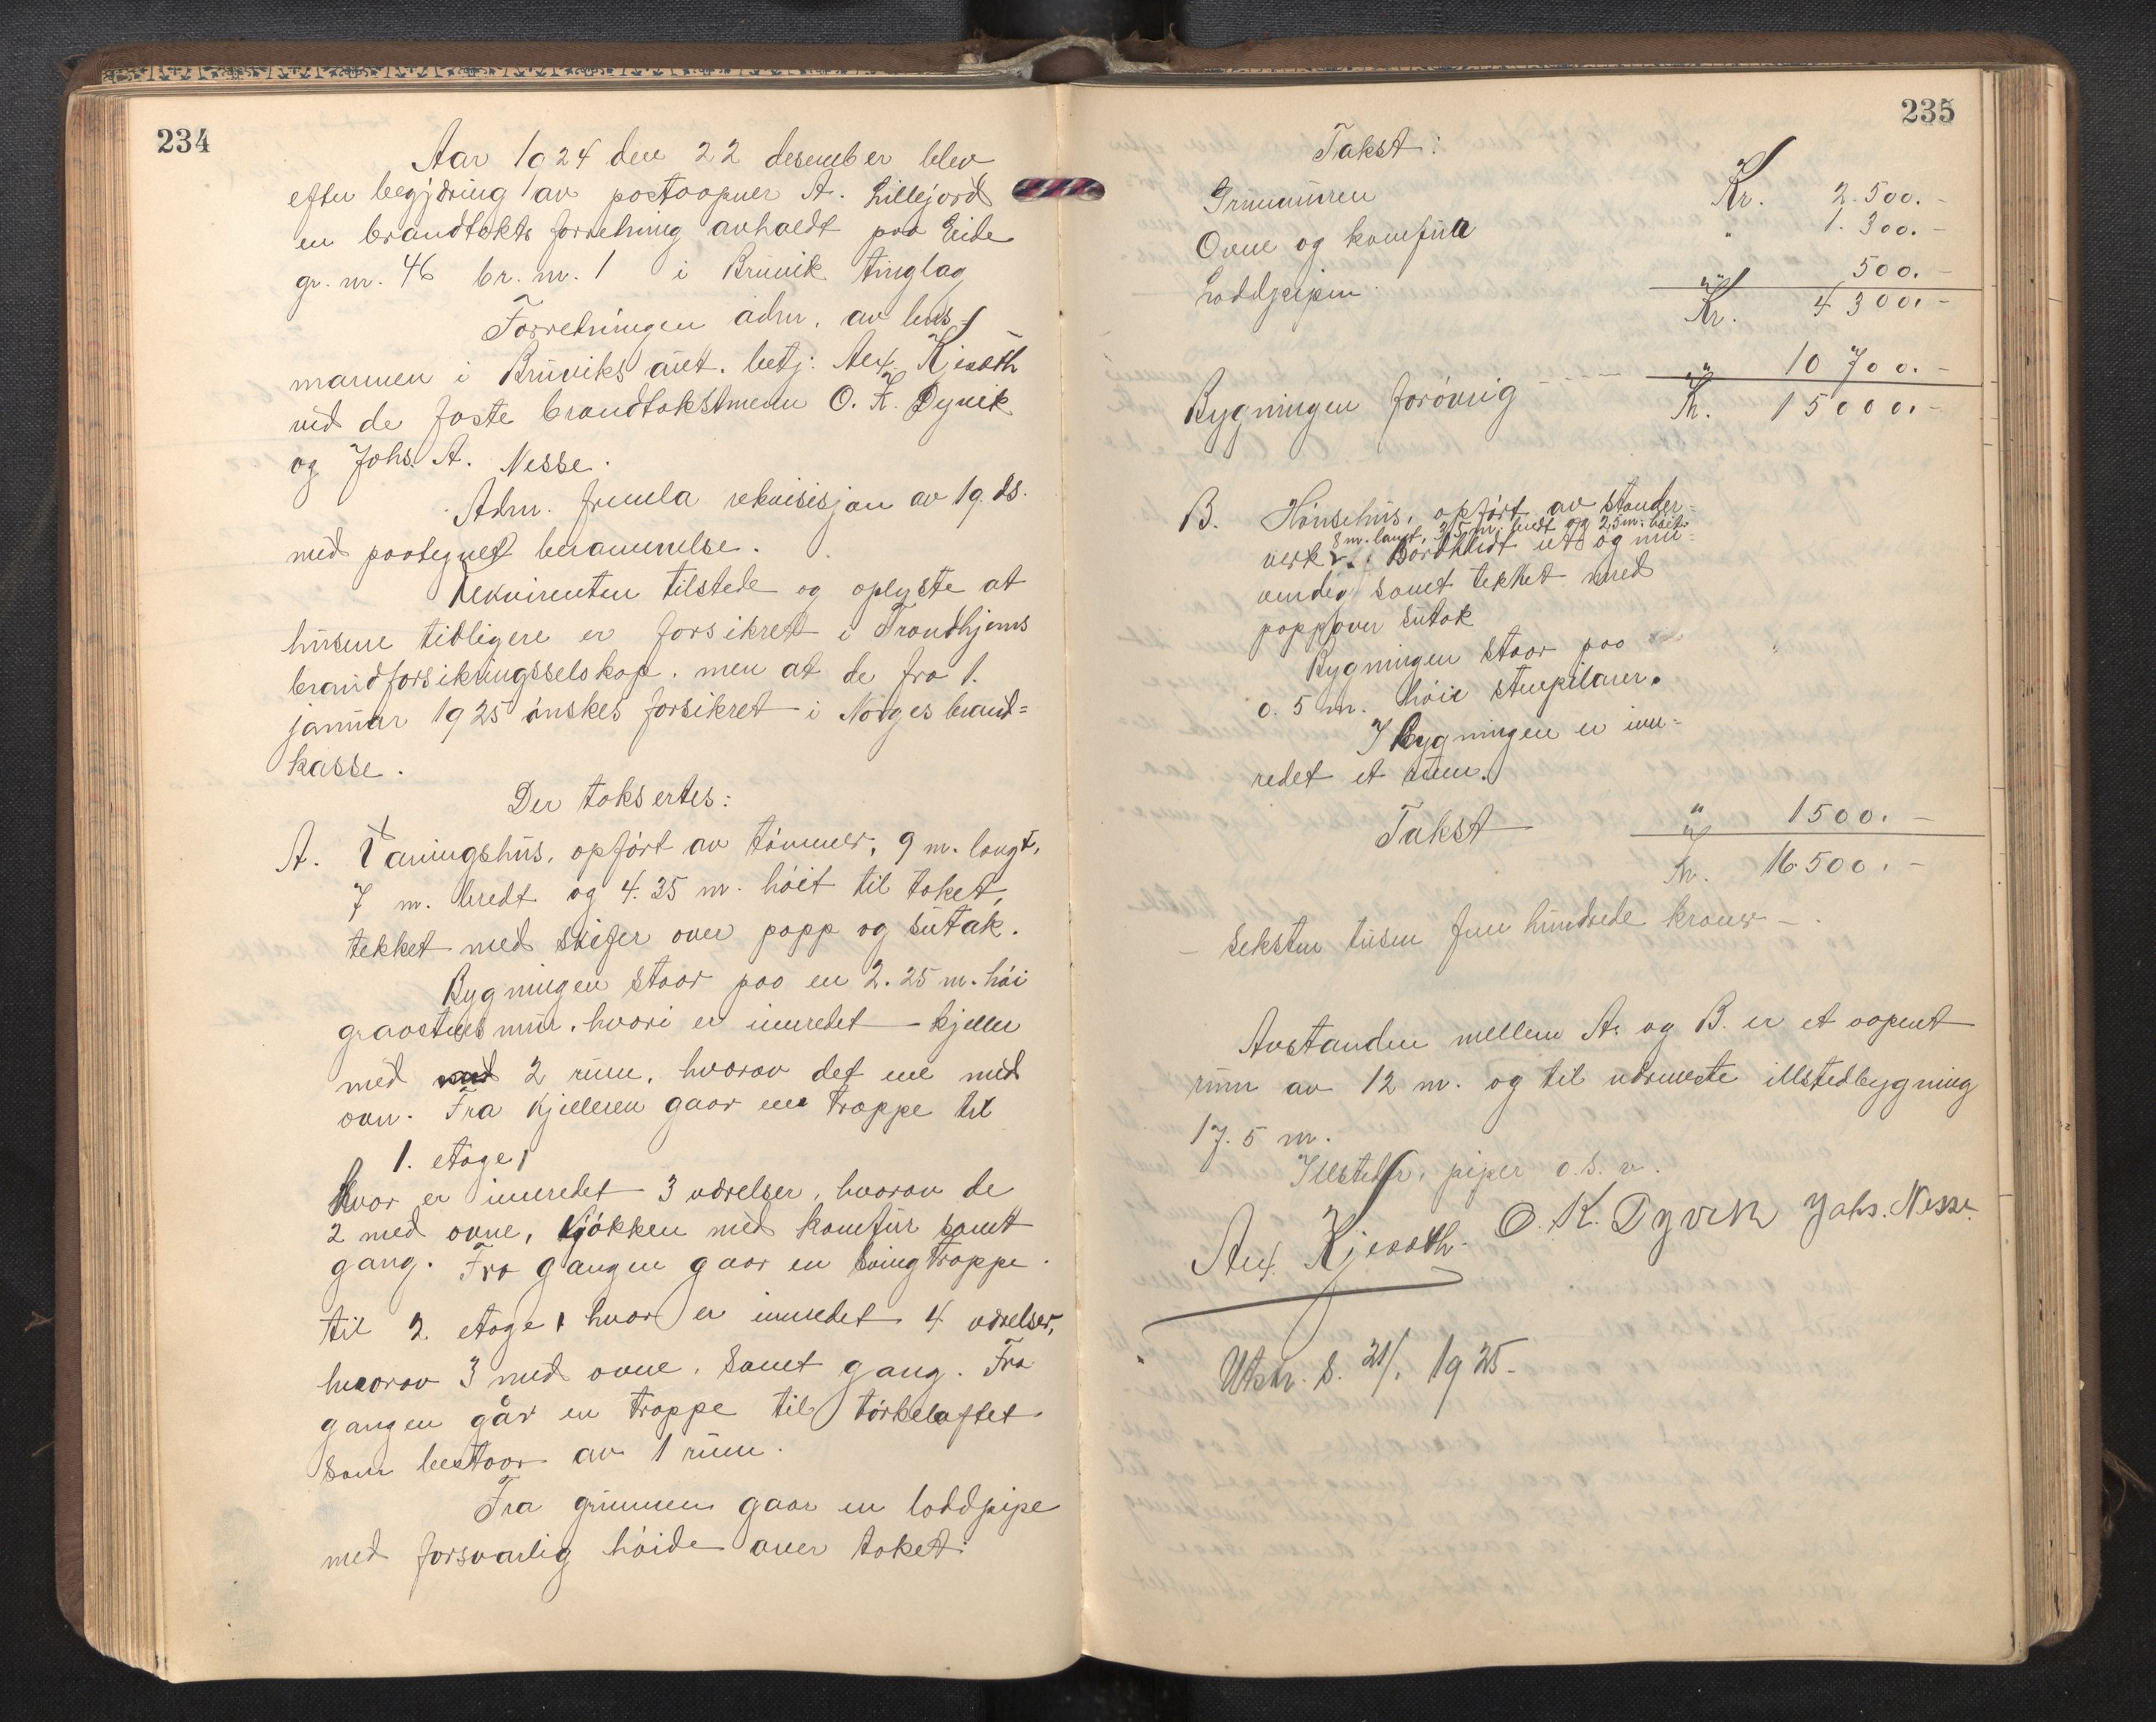 234
Aar 1924 den 22 desember blev
efter begjæring av postaapner A. Lillejord
en brandtakts forretning avholdt paa Eide
gr. nr. 46 br. nr. 1 i Bruvik tinglag
Forretningen adm. av lens-
mannen i Bruviks aut. betj: Alex. Kjeaath
med de faste brandtakstmenn O. K. Dyvik
og Johs. A. Nesse.
Adm. fremla rekvisisjon av 19. ds.
med paategnet berammelse.
Rekvirenten tilstede og oplyste at
husene tidligere er forsikret i Trondhjems
brandforsikringsselskap. men at de fra 1.
januar 1925 ønskes forsikret i Norges brand=
kasse.
Der taksertes:
A. Vaaningshus, opført av tømmer, 9 m. langt,
7 m. bredt og 4.35 m. høit til taket,
tekket med skifer over papp og sutak.
Bygningen staar paa en 2.25 m. høi
graastens mur. hvori er innredet kjeller
med 2 rum. hvorav det ene med
ovn. Fra kjelleren gaar en trappe til
1. etage,
hvor er innredet 3 værelser, hvorav de
2 med ovne, kjøkken med komfur samt
gang. Fra gangen gaar en svingtrappe
til 2 etage, hvor er innredet 4 værelser,
hvorav 3 med ovne. samt gang. Fra
gangen går en trappe til tørkeloftet
som bestaar av 1 rum.
Fra grunnen gaar en loddpipe
med forsvarlig høide over taket.
235
Takst:
Grunmuren Kr. 2.500.-
Ovne og komfur " 1.300.-
Loddpipen " 500.-
Kr. 4300.-
Bygningen forøvrig " 10700.-
Kr. 15000.-
B. Hønsehus, opført av stender=
8 m. langt, 3,5 m. bredt og 2,5 m. høit
verk. Bordkledt ut og inn=
vendig samt tekket med
papp over sutak
Bygningen staar paa
0.5 m. høie stenpilarer.
I bygningen er inn=
redet et rum.
Takst " 1500.-
Kr. 16500.-
- seksten tusen fem hundrede kroner -.
Avstanden mellem A. og B. er et aapent
rum av 12 m. og til nærmeste ildstedbygning
17.5 m.
Ildsteder, piper o.s.v.
Alex. Kjeaath. O. K. Dyvik Johs. Nesse.
Utskr. s. 21/1 1925.